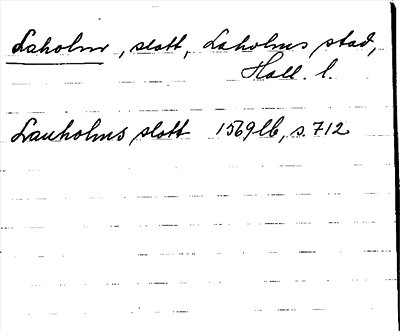 Laholm, slott, Laholms stad,
Hall. l.
Lauholms slott 1569 lb, s. 712